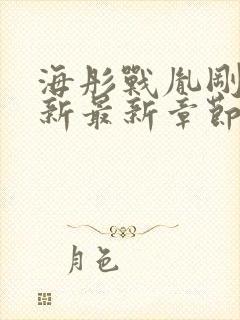 海彤戰胤剛
新最新章節
月色